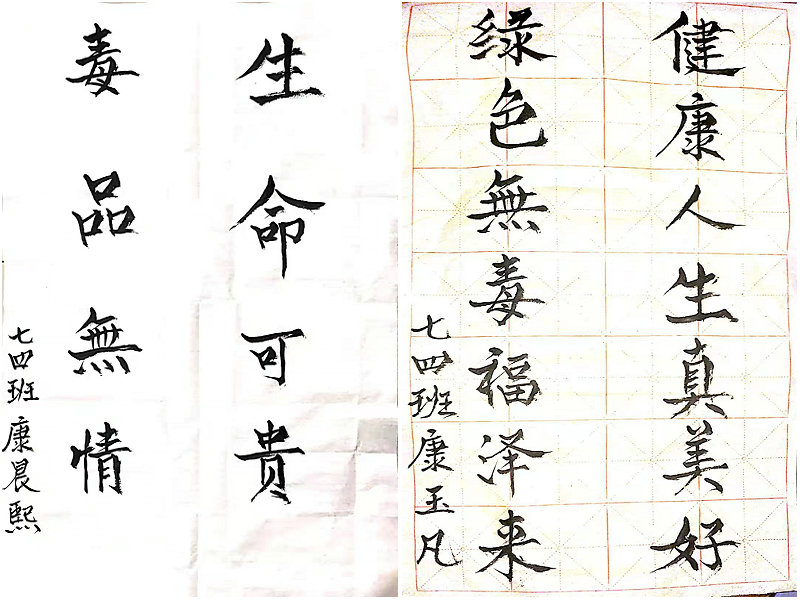 生命可贵
毒品無情
七四班康晨熙
健康人生真美好
绿色無毒福泽来
七四班康玉凡